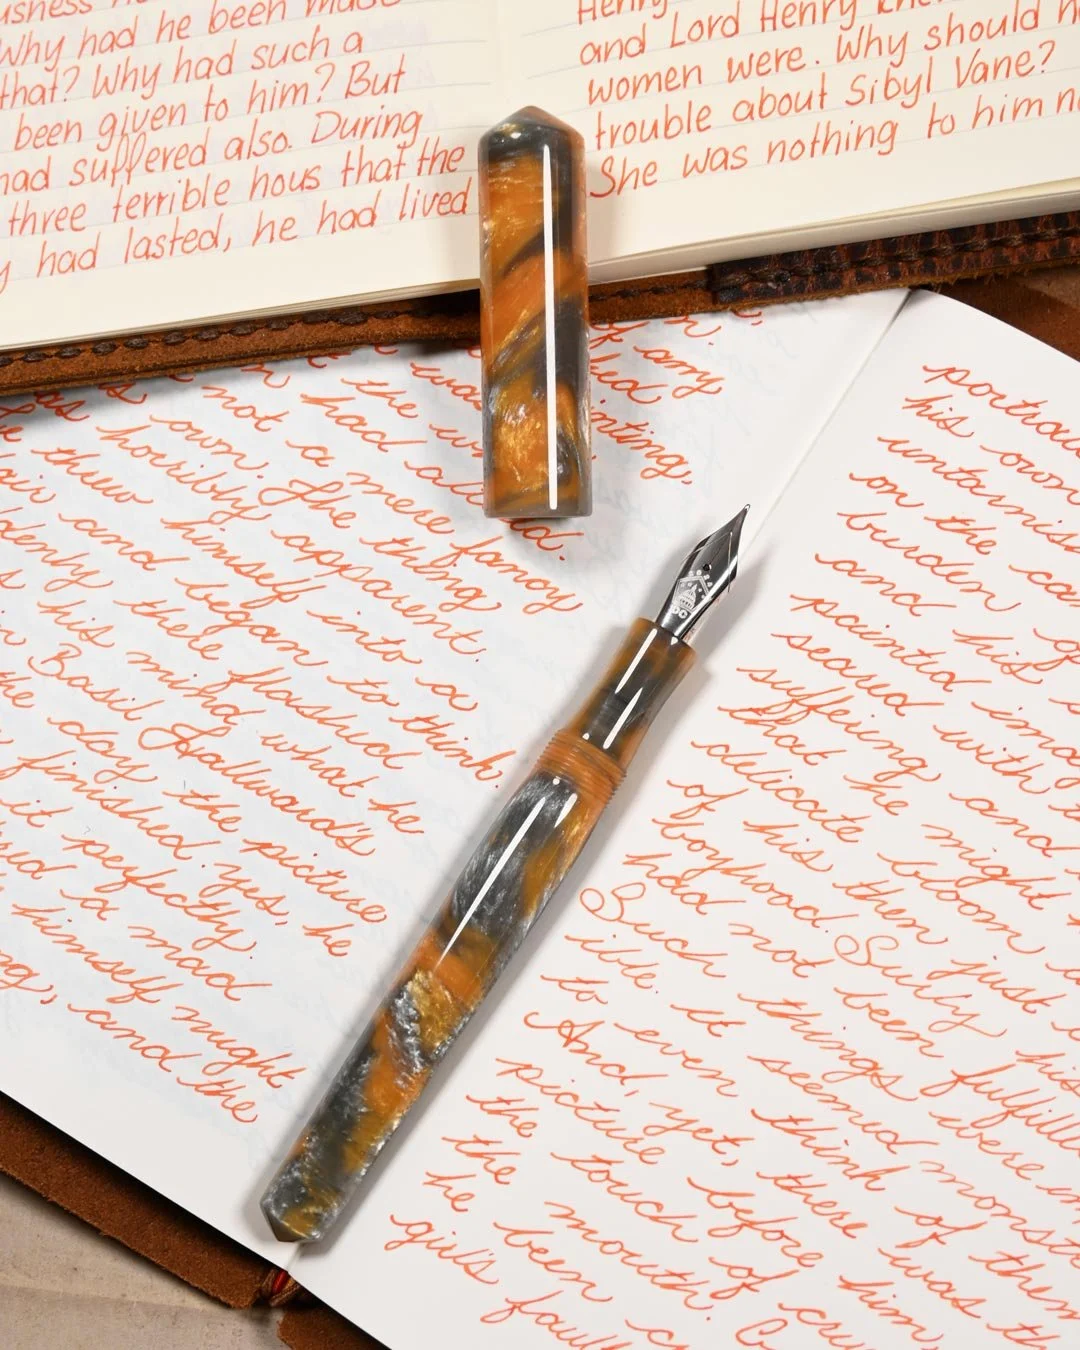 Why had he been made
that? Why had such a
been given to him? But
had suffered also. During
three terrible hous that the
had lasted, he had lived
Henry
and Lord Henry
women were. Why should h
trouble about Sibyl Vane?
She was nothing to him n
of any
inting,
was
the
had al d.
not a mere fancy
own. The thing
horribly apparent.
threw himself into a
air and began to think.
denly the flashed
his mind what he
Basil Hallward's
the day the picture
finished. yes, he
it perfectly.
a mad
himself might
ng, and the
portrai
his own
untarnis
on the ca
burden
and his
painted imag
seared with th
suffering and
that he might
delicate bloom
of his then just
boyhood. Surely his
had not been fulfille
Such things were im
ible. it seemed monst
to even think of them
And, yet, there was th
picture before him
the touch of cru
the mouth. C
he been c
girl's faul